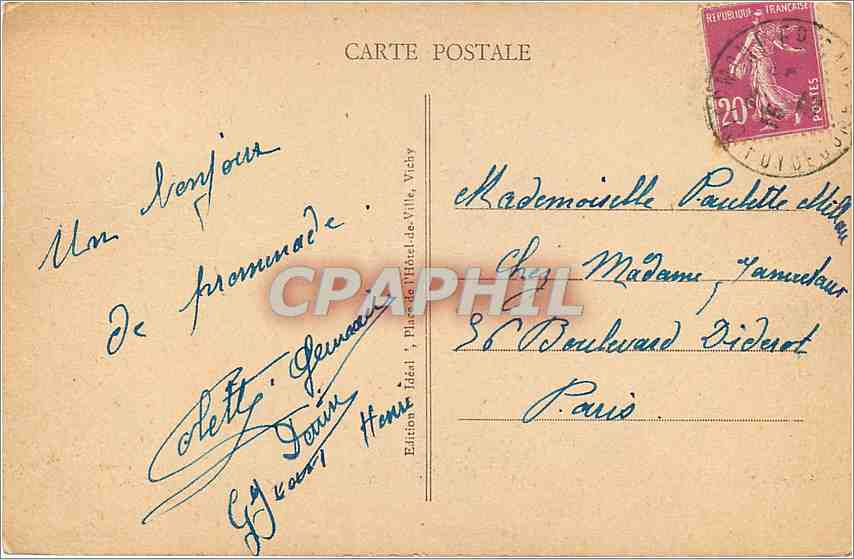 CARTE POSTALE
REPUBLIQUE FRANÇAISE
20c
POSTES
PUY DE DOME
Un bonjour
de promenade.
Colette Germaine
Henri
Edition " Idéal ", Place de l'Hôtel-de-Ville, Vichy
Mademoiselle Paulette
Chez Madame
36 Boulevard Diderot
Paris.
CPAPHIL